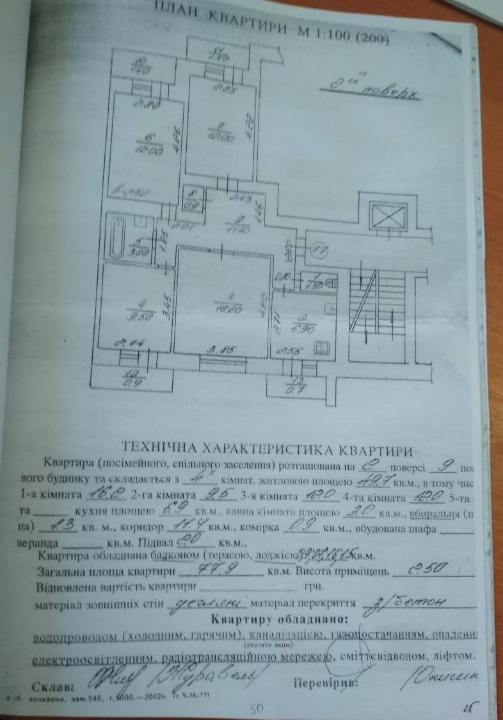 ПЛАН КВАРТИРИ М 1:100 (200)
8й поверх
2.86
2.85
6
12.00
4.05
7
12.00
4.20
h=2.50
2.13
1.45
8
0.9
5
3.00
1.85
4
9.50
3.45
2.74
3
16.00
3.85
2
6.90
2.77
2.55
12
0.9
13
0.7
ТЕХНІЧНА ХАРАКТЕРИСТИКА КВАРТИРИ
Квартира (посімейного, спільного заселення) розташована на 8 поверсі 9 по
вого будинку та складається з 4х кімнат, житловою площею 49.7 кв.м., в тому чис
1-а кімната 16.2 2-га кімната 9.5 3-я кімната 12.0 4-та кімната 12.0 5-та
та кухня площею 6.9 кв.м., ванна кімната площею 3.0 кв. м., вбиральня (п
на) 1.3 кв. м., коридор 11.4 кв.м., комірка 0.9 кв.м., вбудована шафа
веранда кв.м. Підвал кв.м.,
Квартира обладнана балконом (терасою, лоджією) кв.м.
Загальна площа квартири 77.9 кв.м. Висота приміщень 2.50
Відновлена вартість квартири грн.
матеріал зовнішніх стін цегляні матеріал перекриття з/бетон
Квартиру обладнано:
водопроводом (холодним, гарячим), каналізацією, газопостачанням, опаленн
електроосвітленням, радіотрансляційною мережею, сміттєвідводом, ліфтом.
Склав: Перевірив:
50